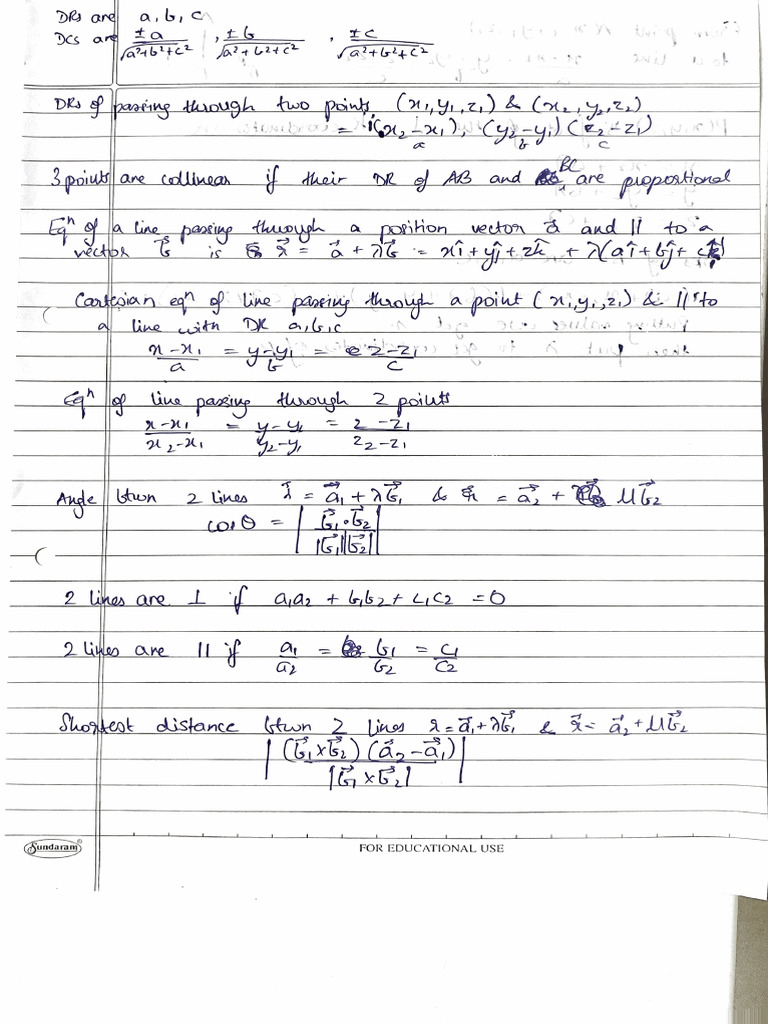 DRs are a, b, c
DCs are ±a/√(a²+b²+c²) , ±b/√(a²+b²+c²) , ±c/√(a²+b²+c²)
DRs of passing through two points (x₁,y₁,z₁) & (x₂,y₂,z₂)
= (x₂-x₁), (y₂-y₁) (z₂-z₁)
a b c
3 points are collinear if their DR of AB and BC are propostional
Eqⁿ of a line passing through a position vector a⃗ and || to a
vector b⃗ is r⃗ = a⃗ + λb⃗ = xî+yĵ+zk̂ + λ(aî+bĵ+ck̂)
Cartesian eqⁿ of line passing through a point (x₁,y₁,z₁) & || to
a line with DR a,b,c
(x-x₁)/a = (y-y₁)/b = (z-z₁)/c
Eqⁿ of line passing through 2 points
(x-x₁)/(x₂-x₁) = (y-y₁)/(y₂-y₁) = (z-z₁)/(z₂-z₁)
Angle btwn 2 lines r⃗ = a⃗₁+λb⃗₁ & r⃗ = a⃗₂ + μb⃗₂
cosθ = |b⃗₁•b⃗₂/|b⃗₁||b⃗₂||
2 lines are ⊥ if a₁a₂ + b₁b₂ + c₁c₂ = 0
2 lines are || if a₁/a₂ = b₁/b₂ = c₁/c₂
Shortest distance btwn 2 lines r=a⃗₁+λb⃗₁ & r⃗= a⃗₂+μb⃗₂
|(b⃗₁×b⃗₂)(a⃗₂-a⃗₁)/|b⃗₁×b⃗₂||
Sundaram® FOR EDUCATIONAL USE